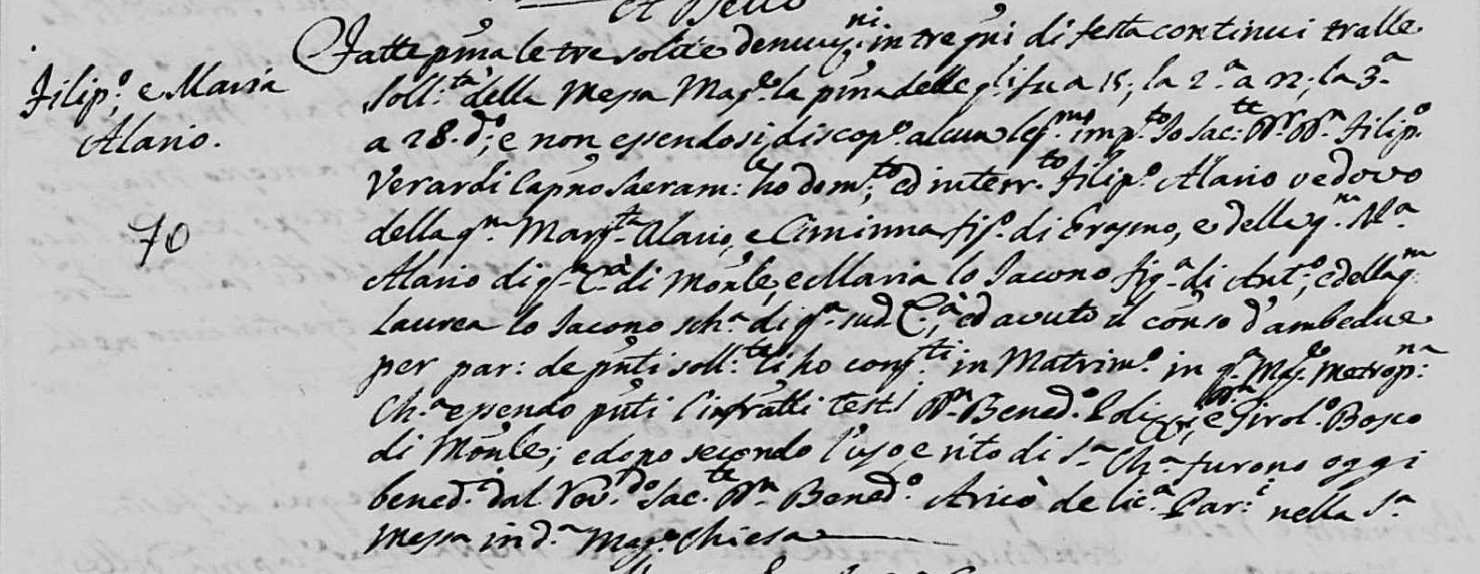 et Bello
Filip.º, e Maria
Alario.
70
Fatte pma le tre solite denunz.ni in tre gni di festa continui tralle
soll.tà della Messa Mag.e la pma delle q.li fu a 15; la 2.a a 22; la 3.a
a 28. d.º; e non essendosi discop.º alcun leg.mo imp.to Io Sac.te Dr. Dn. Filip.º
Verardi Capno Sacram.le ho dom.to, ed interr.to Filip.º Alario vedovo
della q.m Marg.ta Alario, e Ciminna fig.º di Erasmo, e della q.m N.a
Alario di q.a C.à di Monle, e Maria lo Iacono fig.a di Ant.º, e della q.m
Laurea lo Iacono sch.a di q.a sud.a C.à, ed avuto il conso d'ambedue
per par: de pnti soll.te li ho cong.ti in Matrim.º in q.a Mag.e Metrop.na
Ch.a essendo pnti l'infratti test.i Dn. Bened.º e Dn. Girol.º Bosco
di Monle; e dopo secondo l'uso, e rito di S.a Ch.a furono oggi
bened.i dal Rev.do Sac.te Dn. Bened.º Aricò de lic.a Par.i nella S.a
Messa in d.a Mag.e Chiesa